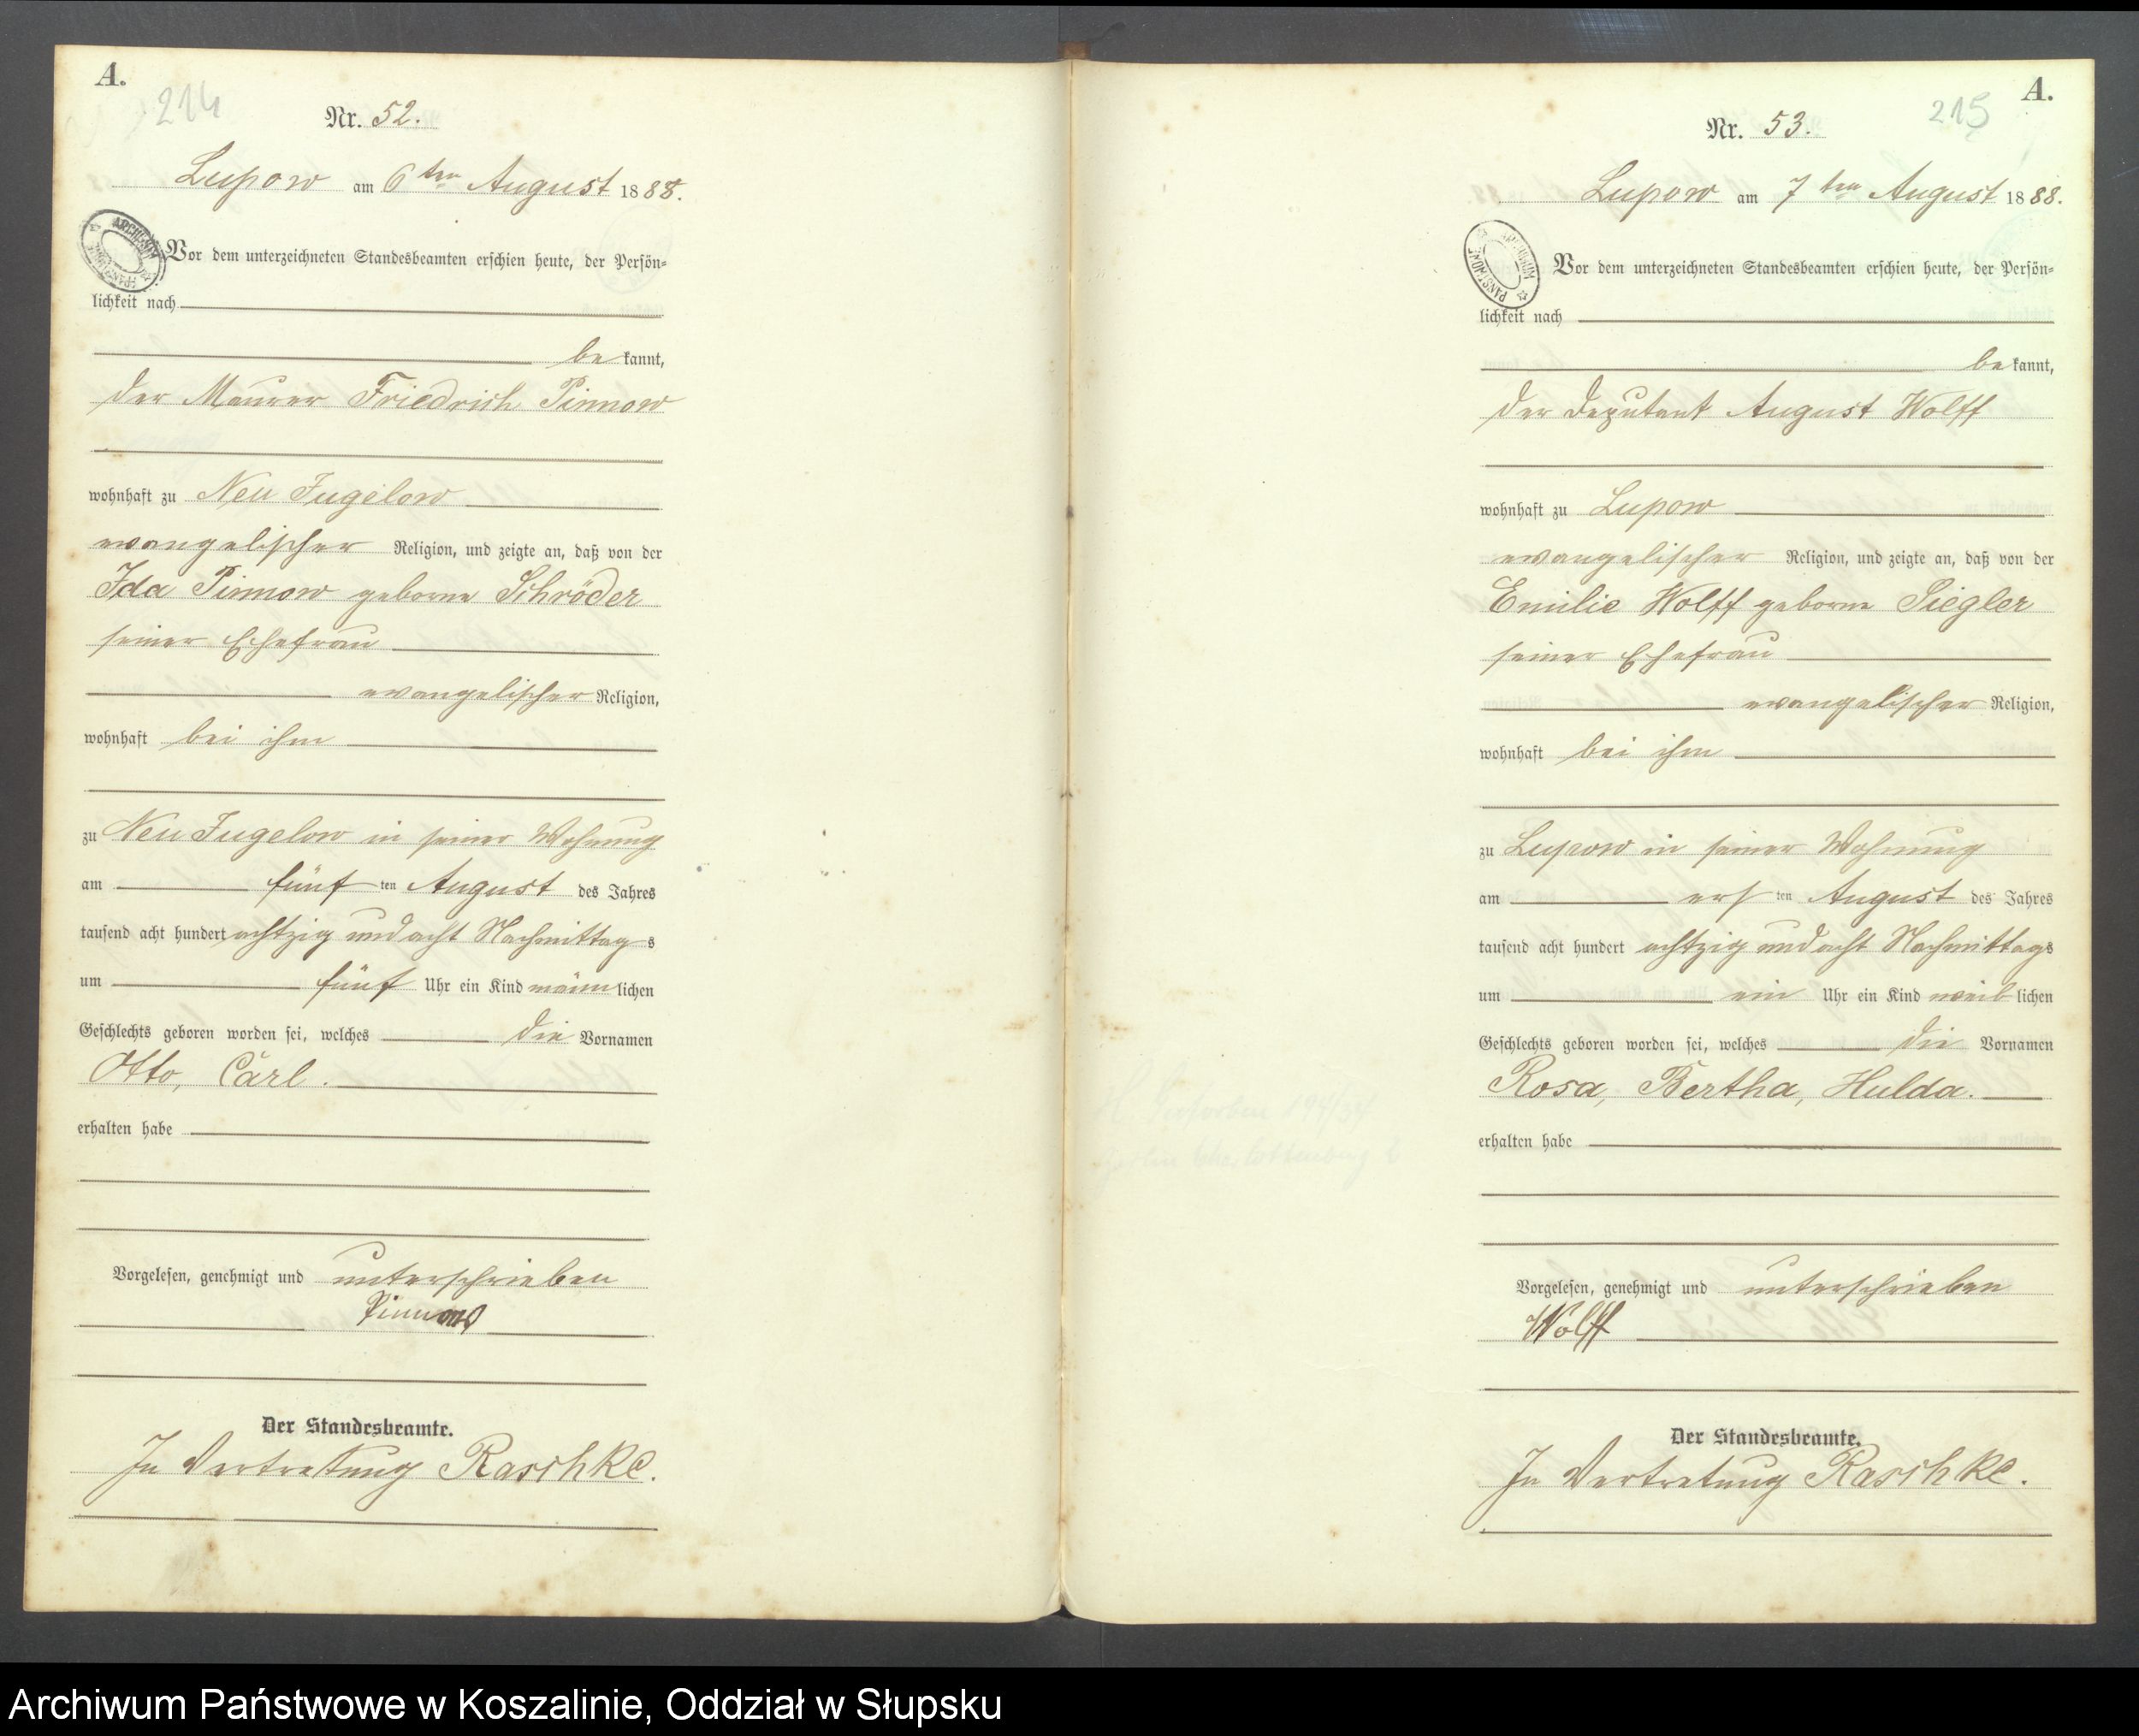 A.
214
Nr. 52.
Lupow am 6ten August 1888.
Vor dem unterzeichneten Standesbeamten erschien heute, der Persön-
lichkeit nach
be kannt,
der Maurer Friedrich Pinnow
wohnhaft zu Neu Jugelow
evangelischer Religion, und zeigte an, daß von der
Ida Pinnow geborne Schröder
seiner Ehefrau
evangelischer Religion,
wohnhaft bei ihm
zu Neu Jugelow in seiner Wohnung
am fünf ten August des Jahres
tausend acht hundert achtzig und acht Nachmittag s
um fünf Uhr ein Kind männ lichen
Geschlechts geboren worden sei, welches die Vornamen
Otto, Carl.
erhalten habe
Vorgelesen, genehmigt und unterschrieben
Pinnow
Der Standesbeamte.
In Vertretung Raschke.
A.
215
Nr. 53.
Lupow am 7ten August 1888.
ARCHIWUM PAŃSTWOWE
Vor dem unterzeichneten Standesbeamten erschien heute, der Persön-
lichkeit nach
be kannt,
der Deputant August Wolff
wohnhaft zu Lupow
evangelischer Religion, und zeigte an, daß von der
Emilie Wolff geborne Siegler
seiner Ehefrau
evangelischer Religion,
wohnhaft bei ihm
zu Lupow in seiner Wohnung
am ers ten August des Jahres
tausend acht hundert achtzig und acht Nachmittags
um ein Uhr ein Kind weib lichen
Geschlechts geboren worden sei, welches die Vornamen
Rosa, Bertha, Hulda.
erhalten habe
Vorgelesen, genehmigt und unterschrieben
Wolff
Der Standesbeamte.
In Vertretung Raschke.
Archiwum Państwowe w Koszalinie, Oddział w Słupsku